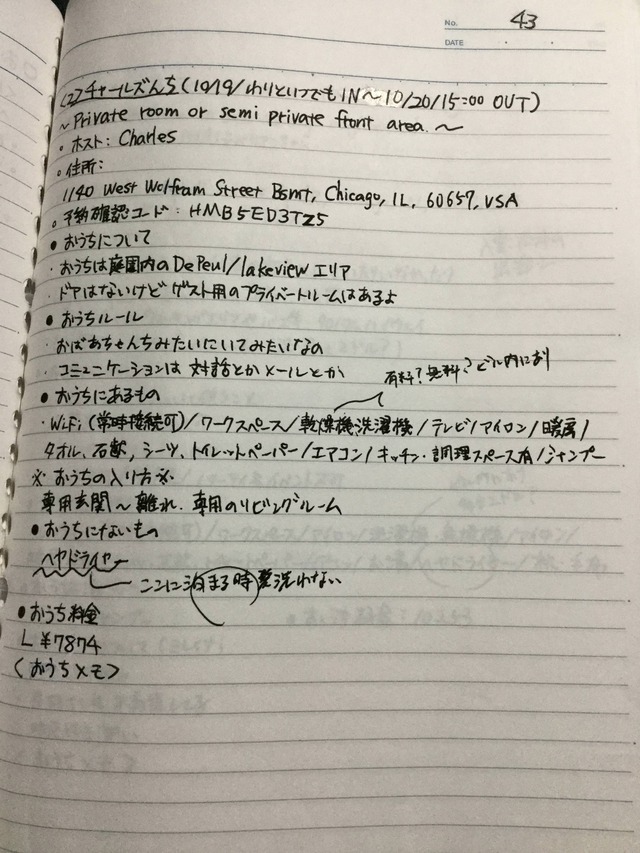 No. 43
DATE
(2) チャールズんち (10/19/わりといつでも IN ~ 10/20/15:00 OUT)
~ Private room or semi private front area. ~
。ホスト: Charles
。住所:
1140 West Wolfram Street Bsmt, Chicago, IL, 60657, USA
。予約確認コード: HMB5ED3TZ5
● おうちについて
・おうちは庭園内の DePeul/lakeview エリア
・ドアはないけど ゲスト用のプライベートルームはあるよ
● おうちルール
・おばあちゃんちみたいにいてみたいなの
・コミュニケーションは 対話とか メールとか
有料? 無料? ビル内にあり
● おうちにあるもの
・WiFi (常時接続可) / ワークスペース / 乾燥機洗濯機 / テレビ / アイロン / 暖房 /
タオル、石鹸、シーツ、トイレットペーパー / エアコン / キッチン・調理スペース有 / シャンプー
※ おうちの入り方 ※
専用玄関 ~ 離れ. 専用のリビングルーム
● おうちにないもの
ヘヤドライヤー
ここに泊まる時 髪洗わない
● おうち料金
L ¥7874
(おうちメモ)